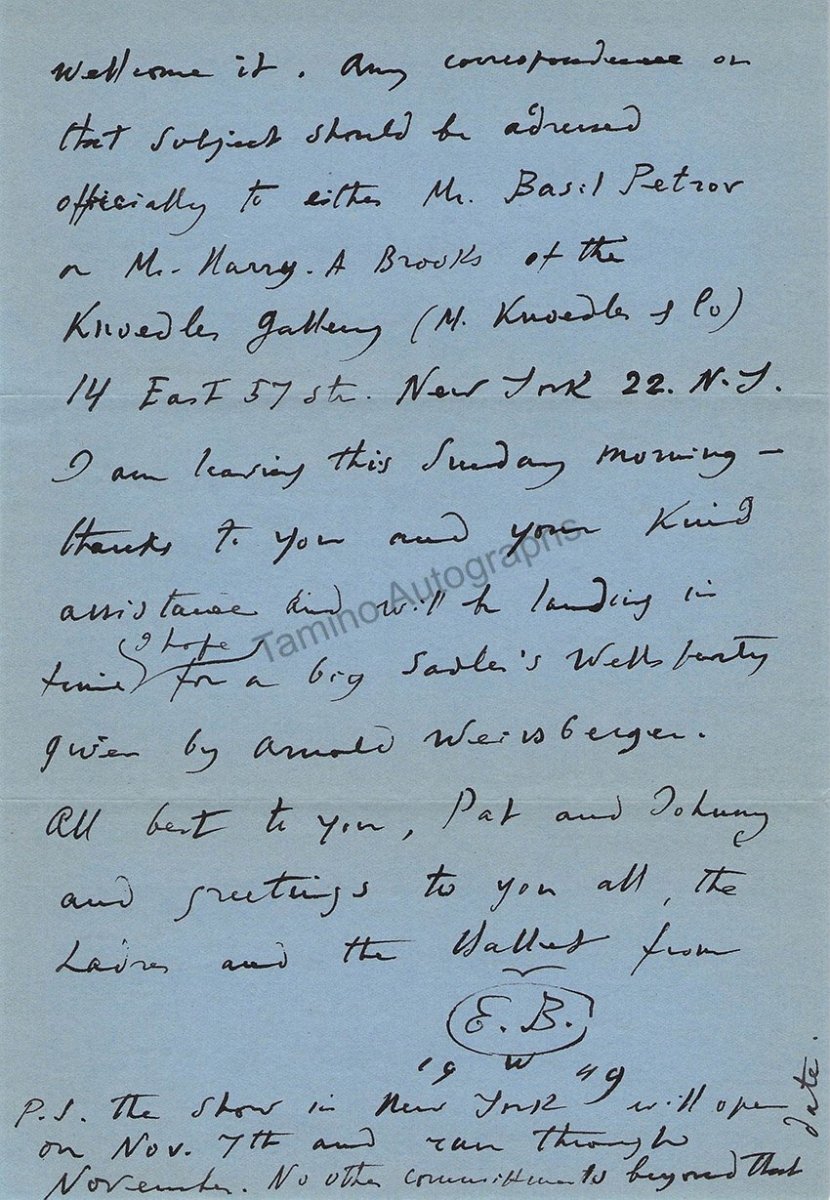 Wellcome it. Any correspondence on
that subject should be adressed
officially to either Mr. Basil Petrov
or Mr. Harry. A Brooks of the
Knoedler Gallery (M. Knoedler & Co)
14 East 57 str. New York 22. N.Y.
I am leaving this Sunday morning –
thanks to you and your Kind
assistance and will be landing in
time (I hope) for a big Sadler's Wells party
given by Arnold Weissberger.
All best to you, Pat and Johnny
and greetings to you all, the
Ladies and the Ballet from
E. B.
19 49
P.S. the show in New York will open
on Nov. 7th and run through
November. No other committments beyond that
date.
Tamino Autographs